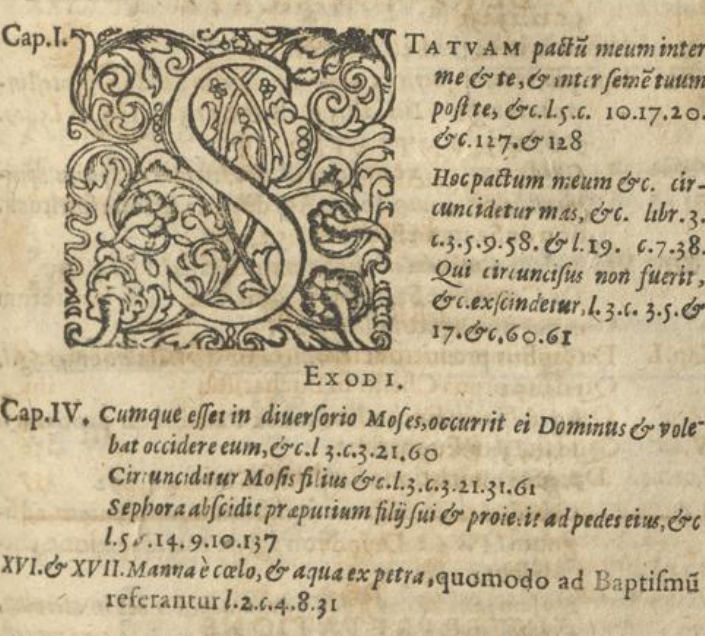 Cap.I. STATVAM pactũ meum inter
me & te, & inter semẽ tuum
post te, &c.l.5.c. 10.17.20.
&c.127.& 128
Hoc pactum meum &c. cir-
cuncidetur mas, &c. libr.3.
c.3.5.9.58. & l.19. c.7.38.
Qui circuncisus non fuerit,
&c.exscindetur, l.3.c. 3.5.&
17.&c.60.61
EXODI.
Cap.IV. Cumque esset in diuersorio Moses,occurrit ei Dominus & vole-
bat occidere eum, &c.l 3.c.3.21.60
Circunciditur Mosis filius &c.l.3.c.3.21.31.61
Sephora abscidit præputium filij sui & proiecit ad pedes eius, &c
l.5 .14. 9.10.137
XVI.& XVII.Manna è cœlo, & aqua ex petra, quomodo ad Baptismũ
referantur l.2.c.4.8.31